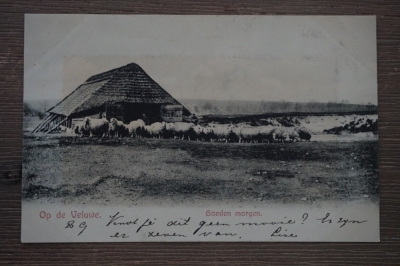 Op de Veluwe.
Goeden morgen.
B G Vind je dit geen mooie? Er zyn
er zeven van. Lise